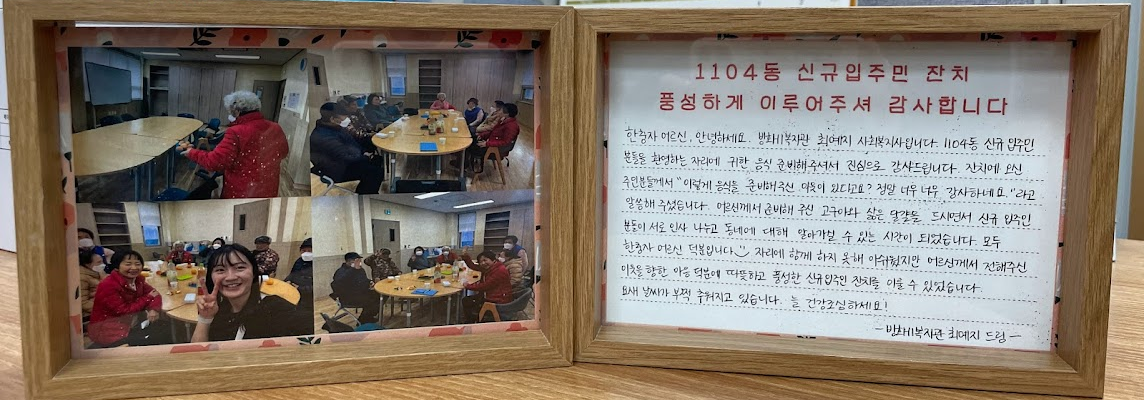 1104동 신규입주민 잔치
풍성하게 이루어주셔 감사합니다
한충자 어르신, 안녕하세요. 방화11복지관 최예지 사회복지사입니다. 1104동 신규 입주민
분들을 환영하는 자리에 귀한 음식 준비해주셔서 진심으로 감사드립니다. 잔치에 오신
주민분들께서 "이렇게 음식을 준비해주신 이웃이 있다고요? 정말 너무 너무 감사하네요."라고
말씀해 주셨습니다. 어르신께서 준비해 주신 고구마와 삶은 달걀을 드시면서 신규 입주민
분들이 서로 인사 나누고 동네에 대해 알아가실 수 있는 시간이 되었습니다. 모두
한충자 어르신 덕분입니다. 자리에 함께 하지 못해 아쉬웠지만 어르신께서 전해주신
이웃을 향한 마음 덕분에 따뜻하고 풍성한 신규입주민 잔치를 이룰 수 있었습니다.
요새 날씨가 부쩍 추워지고 있습니다. 늘 건강조심하세요!
- 방화11복지관 최예지 드림 -